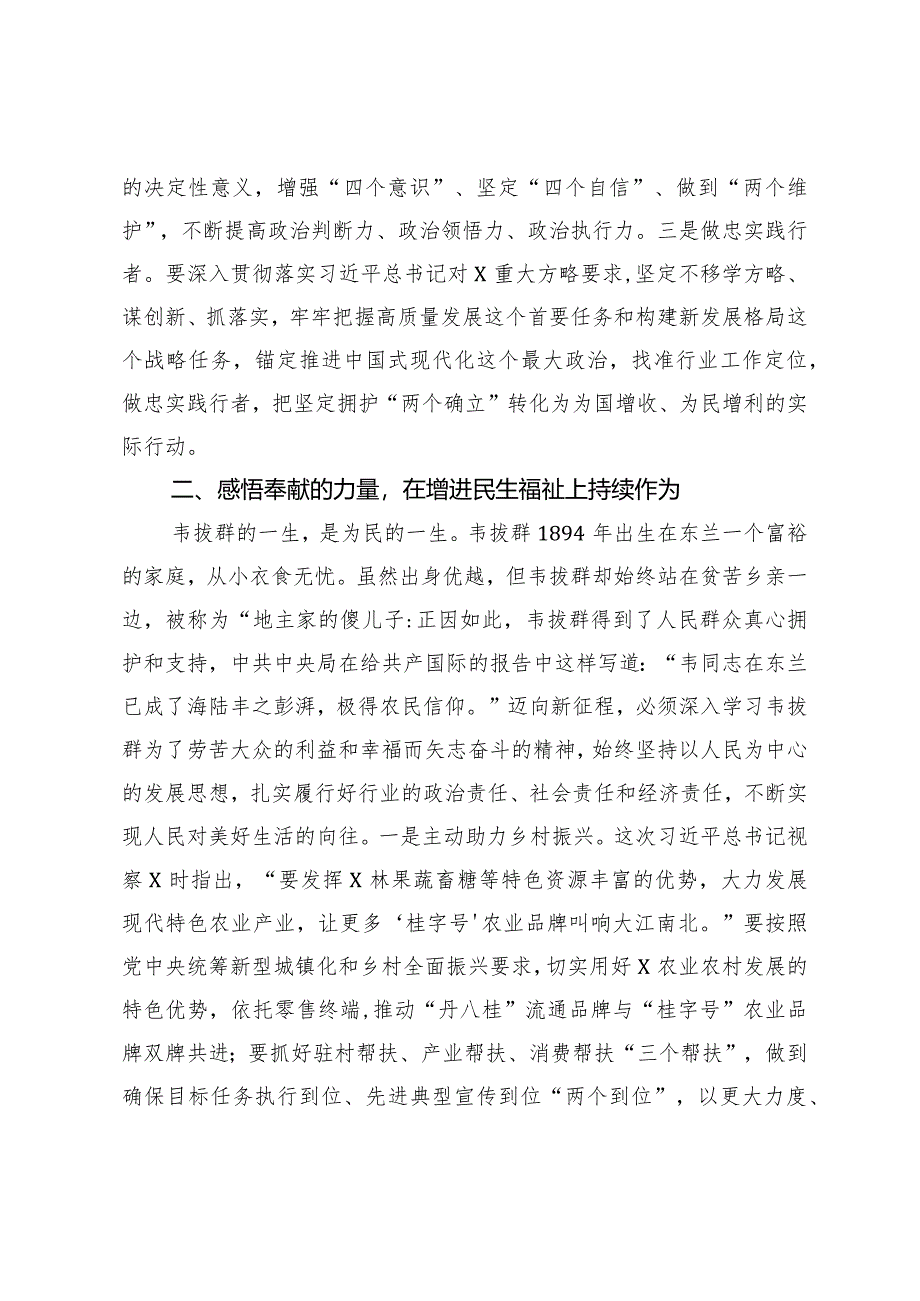 的决定性意义，增强“四个意识”、坚定“四个自信”、做到“两个维
护”，不断提高政治判断力、政治领悟力、政治执行力。三是做忠实践行
者。要深入贯彻落实习近平总书记对X重大方略要求,坚定不移学方略、
谋创新、抓落实，牢牢把握高质量发展这个首要任务和构建新发展格局这
个战略任务，锚定推进中国式现代化这个最大政治，找准行业工作定位，
做忠实践行者，把坚定拥护“两个确立”转化为为国增收、为民增利的实
际行动。
二、感悟奉献的力量，在增进民生福祉上持续作为
韦拔群的一生，是为民的一生。韦拔群1894年出生在东兰一个富裕
的家庭，从小衣食无忧。虽然出身优越，但韦拔群却始终站在贫苦乡亲一
边，被称为“地主家的傻儿子:正因如此，韦拔群得到了人民群众真心拥
护和支持，中共中央局在给共产国际的报告中这样写道：“韦同志在东兰
已成了海陆丰之彭湃，极得农民信仰。”迈向新征程，必须深入学习韦拔
群为了劳苦大众的利益和幸福而矢志奋斗的精神，始终坚持以人民为中心
的发展思想，扎实履行好行业的政治责任、社会责任和经济责任，不断实
现人民对美好生活的向往。一是主动助力乡村振兴。这次习近平总书记视
察X时指出，“要发挥X林果蔬畜糖等特色资源丰富的优势，大力发展
现代特色农业产业，让更多‘桂字号'农业品牌叫响大江南北。”要按照
党中央统筹新型城镇化和乡村全面振兴要求,切实用好X农业农村发展的
特色优势，依托零售终端,推动“丹八桂”流通品牌与“桂字号”农业品
牌双牌共进；要抓好驻村帮扶、产业帮扶、消费帮扶“三个帮扶”，做到
确保目标任务执行到位、先进典型宣传到位“两个到位”，以更大力度、